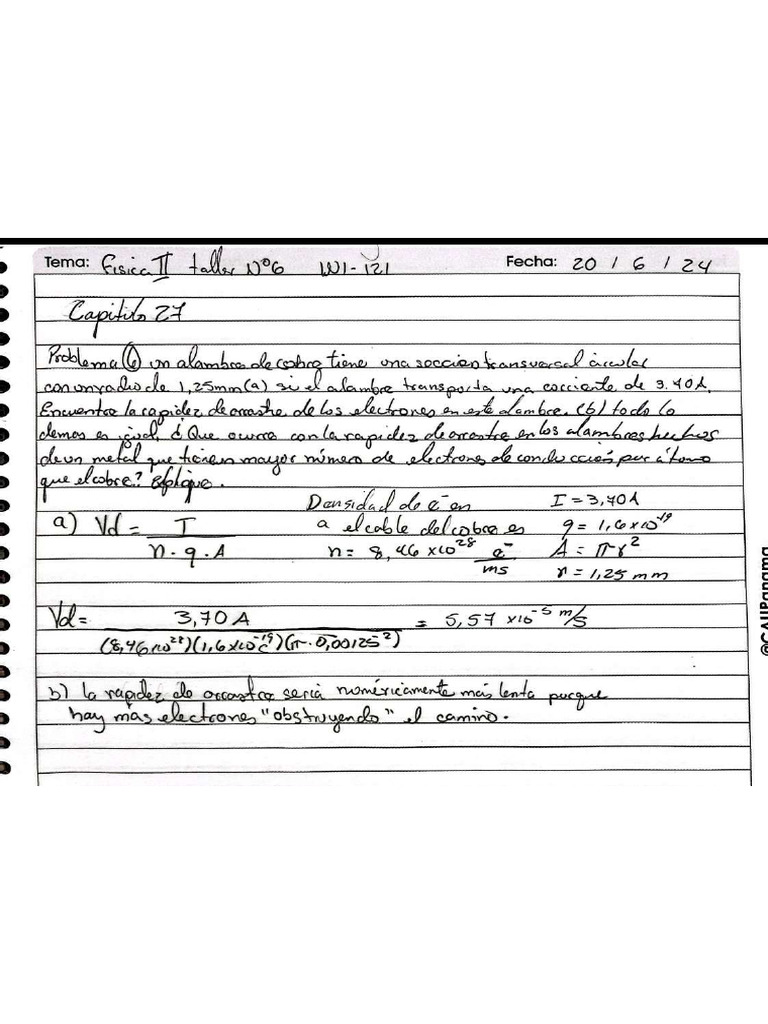 Tema: Fisica II taller N°6 1N1-121 Fecha: 20 / 6 / 24
Capitulo 27
Problema ⑥ un alambre de cobre tiene una seccion transversal circular
con un radio de 1,25mm (a) si el alambre transporta una corriente de 3.70A.
Encuentre la rapidez de arrastre de los electrones en este alambre. (b) todo lo
demas es igual. ¿ Que ocurre con la rapidez de arrastre en los alambres hechos
de un metal que tienen mayor número de electrones de conducción por átomo
que el cobre? Explique.
a) Vd = I / n · q · A
Densidad de e⁻ en
a el cable del cobre es
n = 8,46 x10²⁸ e⁻/m³
I = 3,70A
q = 1,6 x10⁻¹⁹
A = πr²
r = 1,25 mm
Vd = 3,70 A / (8,46x10²⁸)(1,6x10⁻¹⁹C)(π · 0,00125²) = 5,57 x10⁻⁵ m/s
b) la rapidez de arrastre seria numéricamente más lenta porque
hay más electrones "obstruyendo" el camino.
@CAUPanama